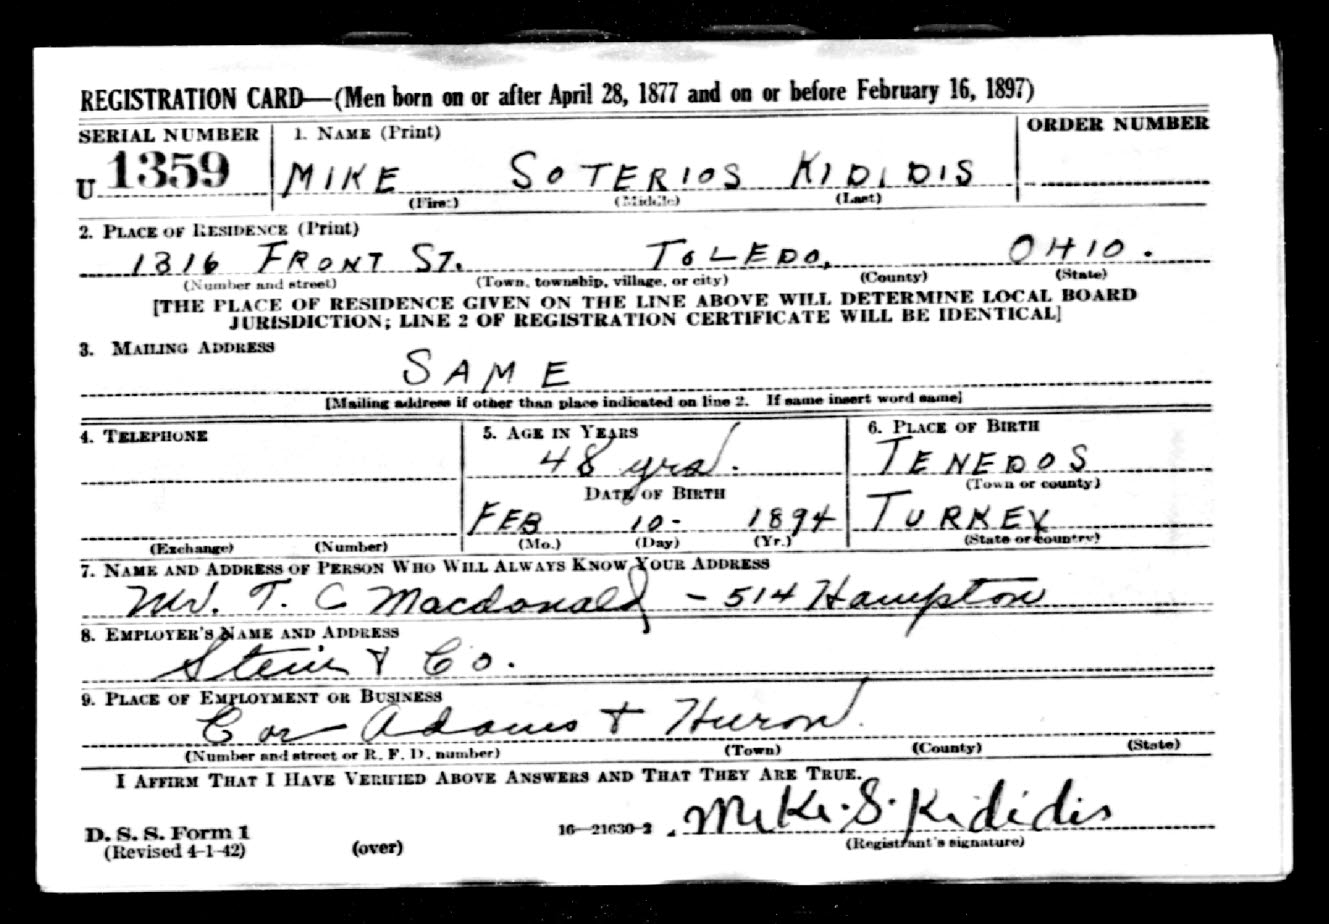 REGISTRATION CARD—(Men born on or after April 28, 1877 and on or before February 16, 1897)
SERIAL NUMBER 1. NAME (Print) ORDER NUMBER
U 1359 MIKE SOTERIOS KIDIDIS
(First) (Middle) (Last)
2. PLACE OF RESIDENCE (Print)
1316 FRONT ST. TOLEDO, OHIO.
(Number and street) (Town, township, village, or city) (County) (State)
[THE PLACE OF RESIDENCE GIVEN ON THE LINE ABOVE WILL DETERMINE LOCAL BOARD
JURISDICTION; LINE 2 OF REGISTRATION CERTIFICATE WILL BE IDENTICAL]
3. MAILING ADDRESS
SAME
[Mailing address if other than place indicated on line 2. If same insert word same]
4. TELEPHONE 5. AGE IN YEARS 6. PLACE OF BIRTH
48 yrs. TENEDOS
DATE OF BIRTH (Town or county)
FEB 10- 1894 TURKEY
(Exchange) (Number) (Mo.) (Day) (Yr.) (State or country)
7. NAME AND ADDRESS OF PERSON WHO WILL ALWAYS KNOW YOUR ADDRESS
Mr. T. C Macdonald - 514 Hampton
8. EMPLOYER'S NAME AND ADDRESS
Stein & Co.
9. PLACE OF EMPLOYMENT OR BUSINESS
Cor Adams + Huron
(Number and street or R. F. D. number) (Town) (County) (State)
I AFFIRM THAT I HAVE VERIFIED ABOVE ANSWERS AND THAT THEY ARE TRUE.
D. S. S. Form 1 16—21630-2 Mike. S. Kididis
(Revised 4-1-42) (over) (Registrant's signature)